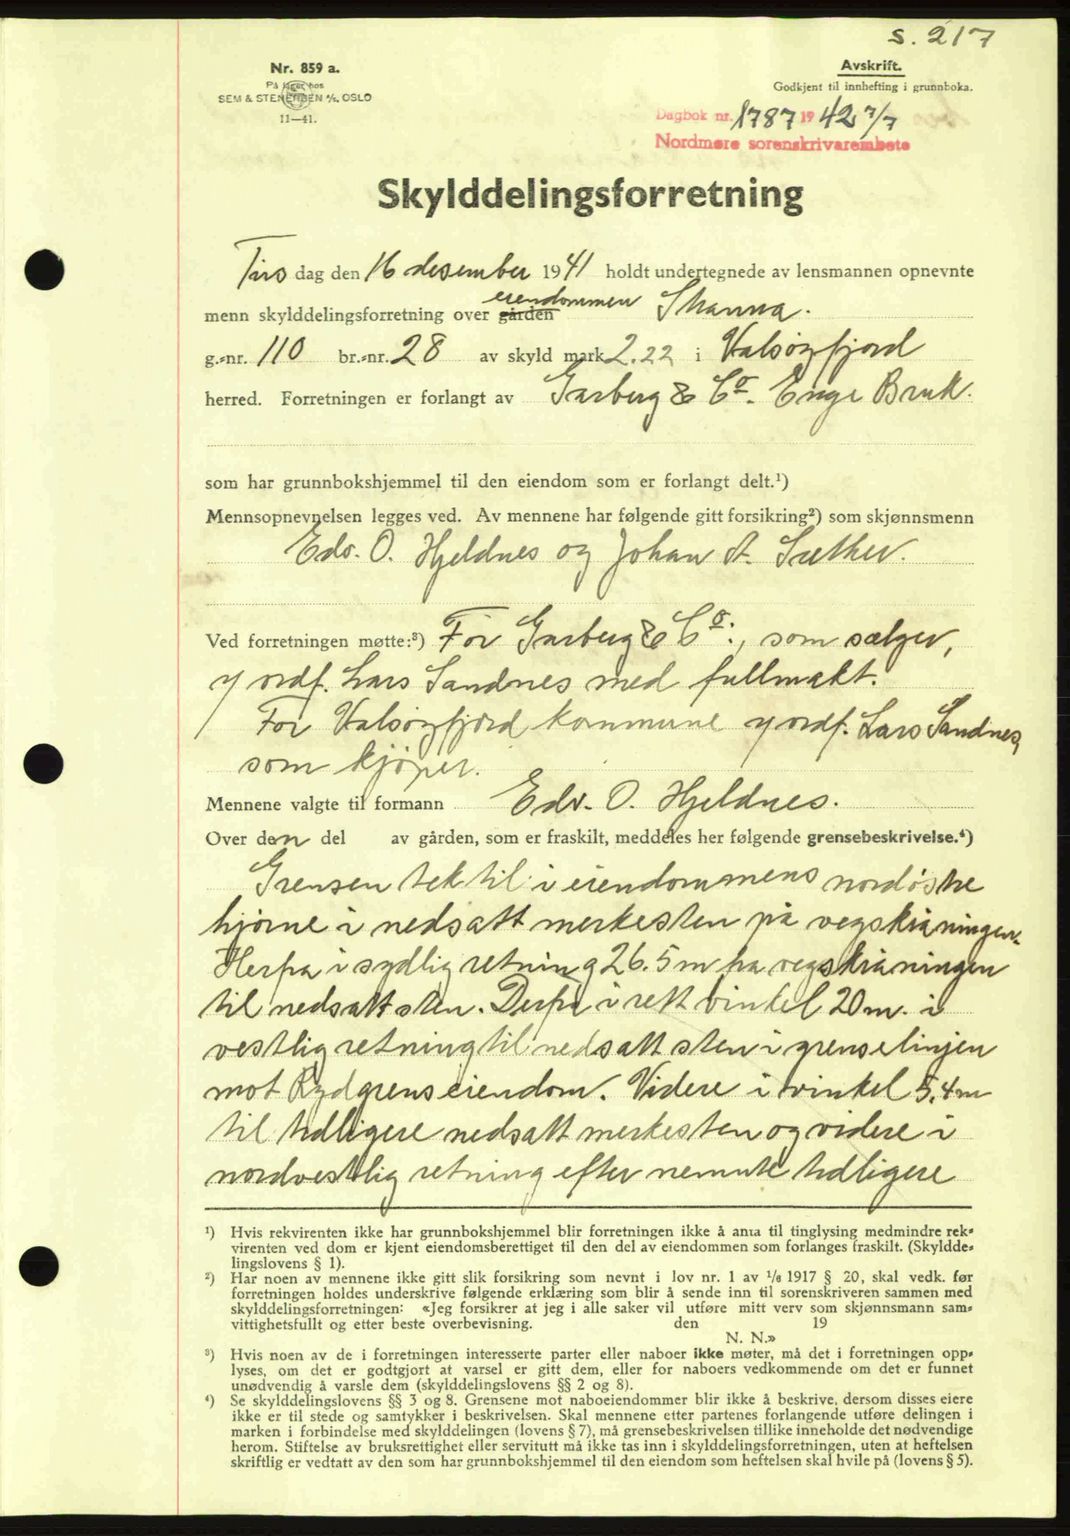 s. 217
Nr. 859 a.
På lager hos
SEM & STENERSEN A/S. OSLO
11—41.
Avskrift.
Godkjent til innhefting i grunnboka.
Dagbok nr. 1787 19 42 7/7
Nordmøre sorenskrivarembete
Skylddelingsforretning
Tirs dag den 16 desember 1941 holdt undertegnede av lensmannen opnevnte
eiendommen
menn skylddelingsforretning over gården Skanna.
g.-nr. 110 br.-nr. 28 av skyld mark 2.22 i Valsøyfjord
herred. Forretningen er forlangt av Garberg & Co. Enge Bruk.
som har grunnbokshjemmel til den eiendom som er forlangt delt.¹)
Mennsopnevnelsen legges ved. Av mennene har følgende gitt forsikring²) som skjønnsmenn
Edv. O. Hjeldnes og Johan A. Sæther.
Ved forretningen møtte:³) For Garberg & Co., som sælger,
v/ ordf. Lars Sandnes med fullmakt.
For Valsøyfjord kommune v/ ordf. Lars Sandnes,
som kjøper.
Mennene valgte til formann Edv. O. Hjeldnes.
Over den del av gården, som er fraskilt, meddeles her følgende grensebeskrivelse.⁴)
Grensen tek til i eiendommens nordøstre
hjørne i nedsatt merkesten på vegskråningen.
Herfra i sydlig retning 26.5 m fra vegskråningen
til nedsatt sten. Derfra i rett vinkel 20 m. i
vestlig retning til nedsatt sten i grenselinjen
mot Rydgrens eiendom. Videre i vinkel 5.4 m
til tidligere nedsatt merkesten og videre i
nordvestlig retning efter nemnte tidligere
¹) Hvis rekvirenten ikke har grunnbokshjemmel blir forretningen ikke å anta til tinglysing medmindre rek-
virenten ved dom er kjent eiendomsberettiget til den del av eiendommen som forlanges fraskilt. (Skyldde-
lingslovens § 1).
²) Har noen av mennene ikke gitt slik forsikring som nevnt i lov nr. 1 av 1/6 1917 § 20, skal vedk. før
forretningen holdes underskrive følgende erklæring som blir å sende inn til sorenskriveren sammen med
skylddelingsforretningen: «Jeg forsikrer at jeg i alle saker vil utføre mitt verv som skjønnsmann sam-
vittighetsfullt og etter beste overbevisning. den 19
N. N.»
³) Hvis noen av de i forretningen interesserte parter eller naboer ikke møter, må det i forretningen opp-
lyses, om det er godtgjort at varsel er gitt dem, eller for naboers vedkommende om det er funnet
unødvendig å varsle dem (skylddelingslovens §§ 2 og 8).
⁴) Se skylddelingslovens §§ 3 og 8. Grensene mot naboeiendommer blir ikke å beskrive, dersom disses eiere
ikke er til stede og samtykker i beskrivelsen. Skal mennene etter partenes forlangende utføre delingen i
marken i forbindelse med skylddelingen (lovens § 7), må grensebeskrivelsen tillike inneholde det nødvendige
herom. Stiftelse av bruksrettighet eller servitutt må ikke tas inn i skylddelingsforretningen, uten at heftelsen
skriftlig er vedtatt av den som har grunnbokshjemmel til den eiendom som heftelsen skal hvile på (lovens § 5).